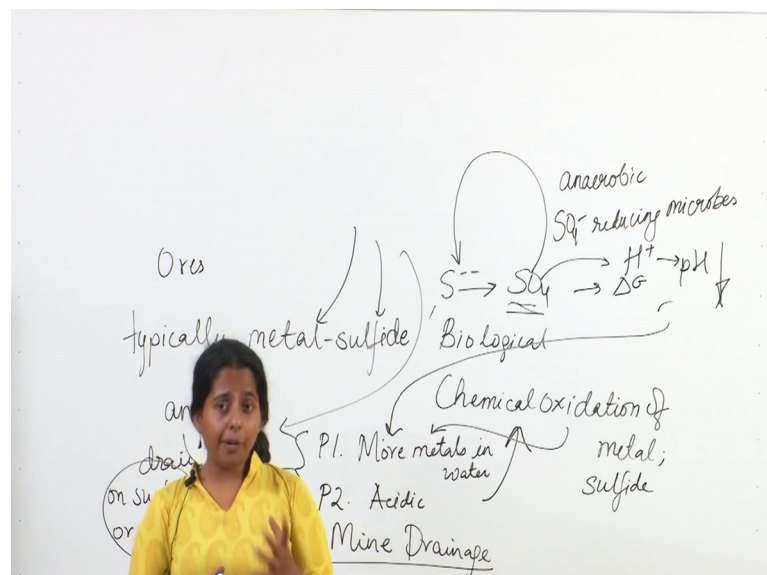 anaerobic
SO4-- reducing microbes
Ores
S-- → SO4 → H+ → pH ↓
→ ΔG
typically metal-sulfide
Biological
Chemical oxidation of
metal;
sulfide
P1. More metals in
water
P2. Acidic
on
or
Mine Drainage